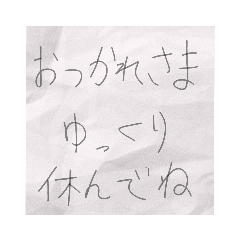 おつかれさま
ゆっくり
休んでね